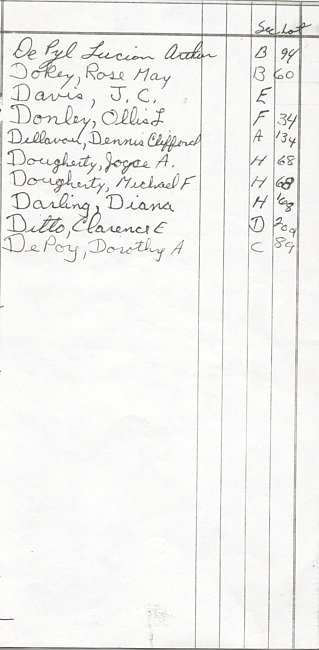 Sec Lot
De Pyl Lucion Arthur B 94
Dokey, Rose May B 60
Davis, J. C. E
Donley, Ollis L F 34
Dellavon, Dennis Clifford A 134
Dougherty, Joyce A. H 68
Dougherty, Michael F H 68
Darling, Diana H 168
Ditto, Clarence E D 209
DePoy, Dorothy A C 89